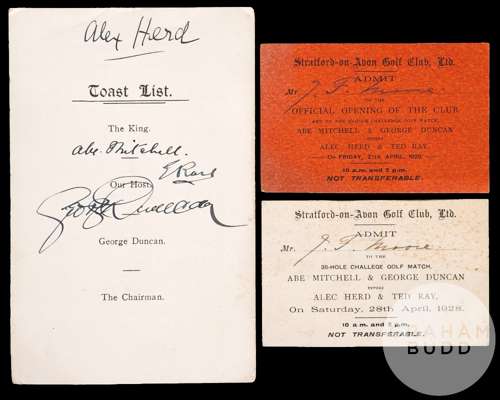 Alex Herd
Toast List.
The King.
Abe Mitchell.
E Ray
Our Host
George Duncan
George Duncan.
The Chairman.
Stratford-on-Avon Golf Club, Ltd.
ADMIT
Mr. J. T. Moore.
TO THE
OFFICIAL OPENING OF THE CLUB
AND TO THE 36-HOLE CHALLENGE GOLF MATCH,
ABE MITCHELL & GEORGE DUNCAN
VERSUS
ALEC HERD & TED RAY,
ON FRIDAY, 27TH APRIL, 1928.
10 a.m. and 2 p.m.
NOT TRANSFERABLE.
Stratford-on-Avon Golf Club, Ltd.
ADMIT
Mr. J. T. Moore.
TO THE
36-HOLE CHALLEGE GOLF MATCH,
ABE MITCHELL AND GEORGE DUNCAN
VERSUS
ALEC HERD & TED RAY,
On Saturday, 28th April, 1928.
10 a.m. and 2 p.m.
NOT TRANSFERABLE.
GRAHAM
BUDD